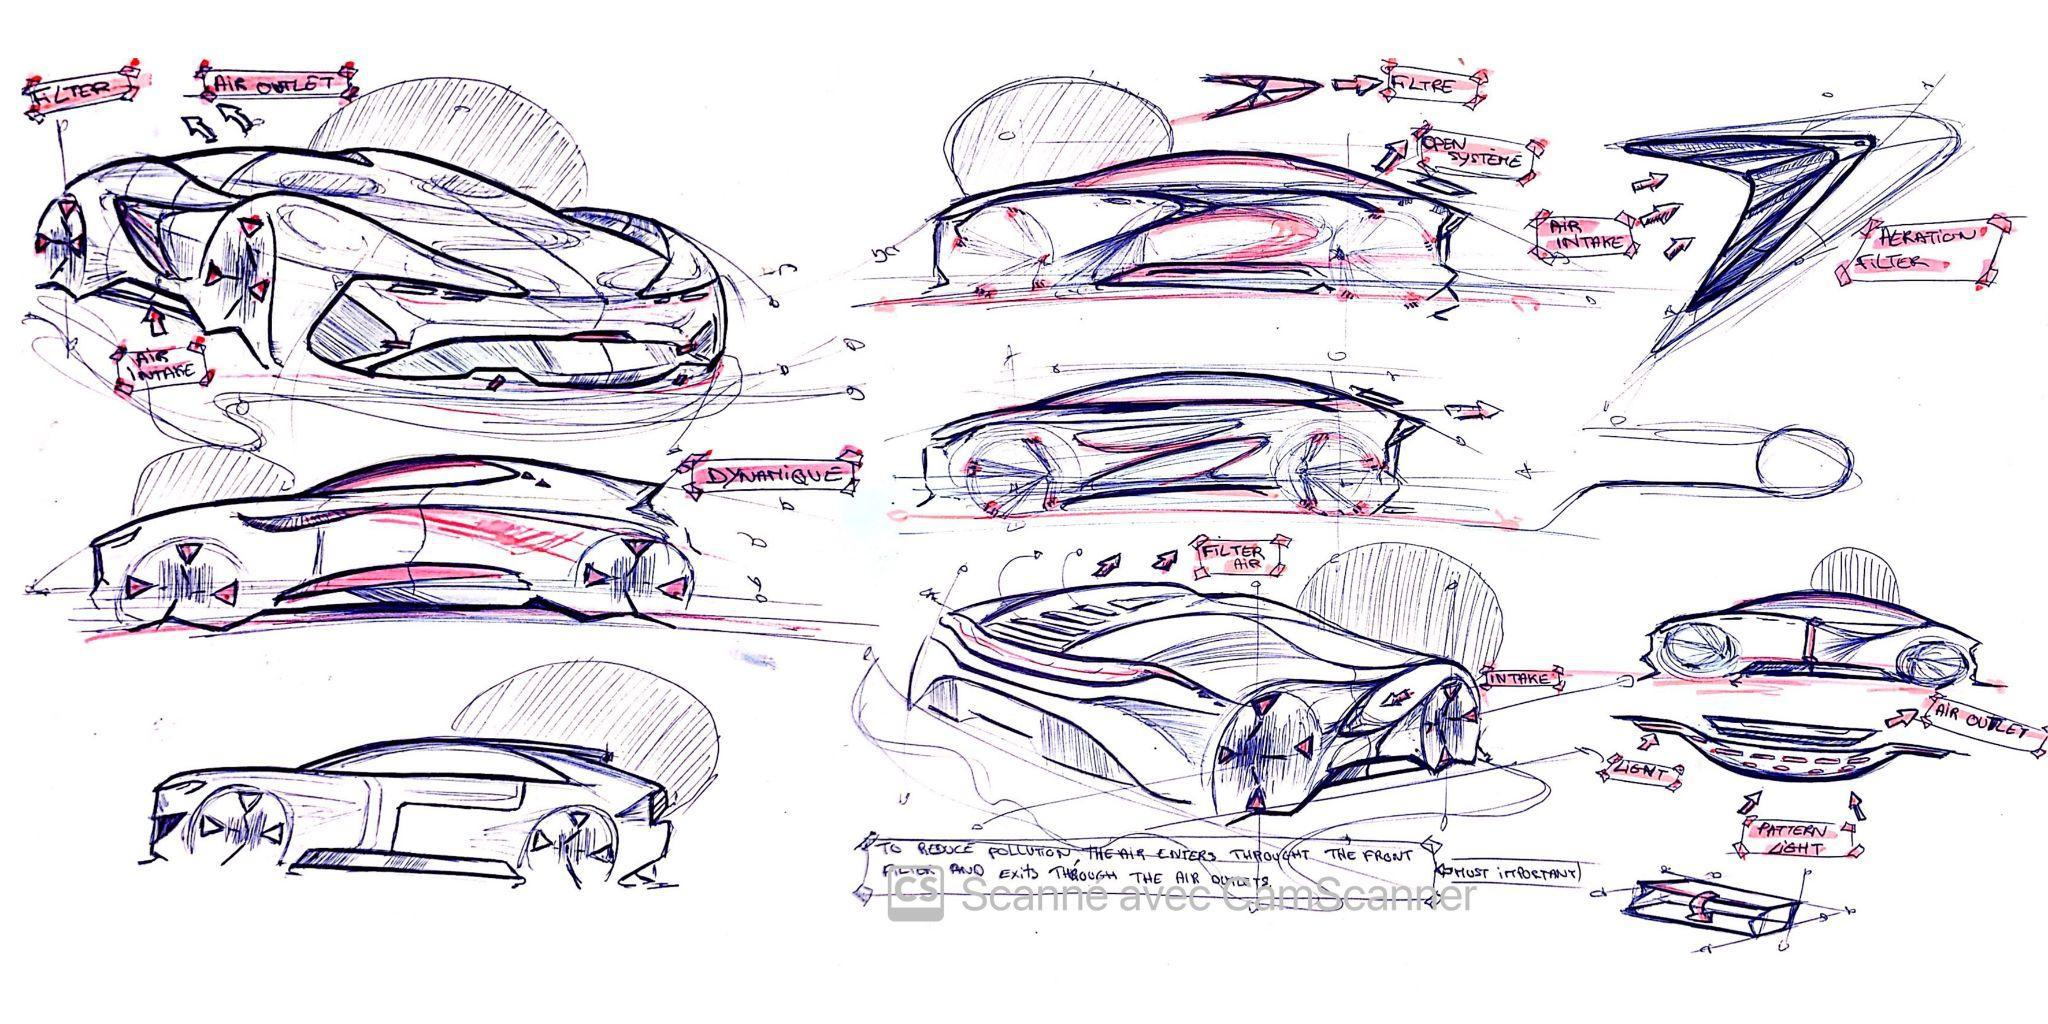 FILTER
AIR OUTLET
AIR
INTAKE
DYNAMIQUE
FILTRE
OPEN
SYSTÈME
AIR
INTAKE
AERATION
FILTER
FILTER
AIR
INTAKE
AIR OUTLET
LIGHT
PATTERN
LIGHT
TO REDUCE POLLUTION, THE AIR ENTERS THROUGHT THE FRONT
FILTER AND EXITS THROUGH THE AIR OUTLETS.
(MOST IMPORTANT)
CS Scanné avec CamScanner